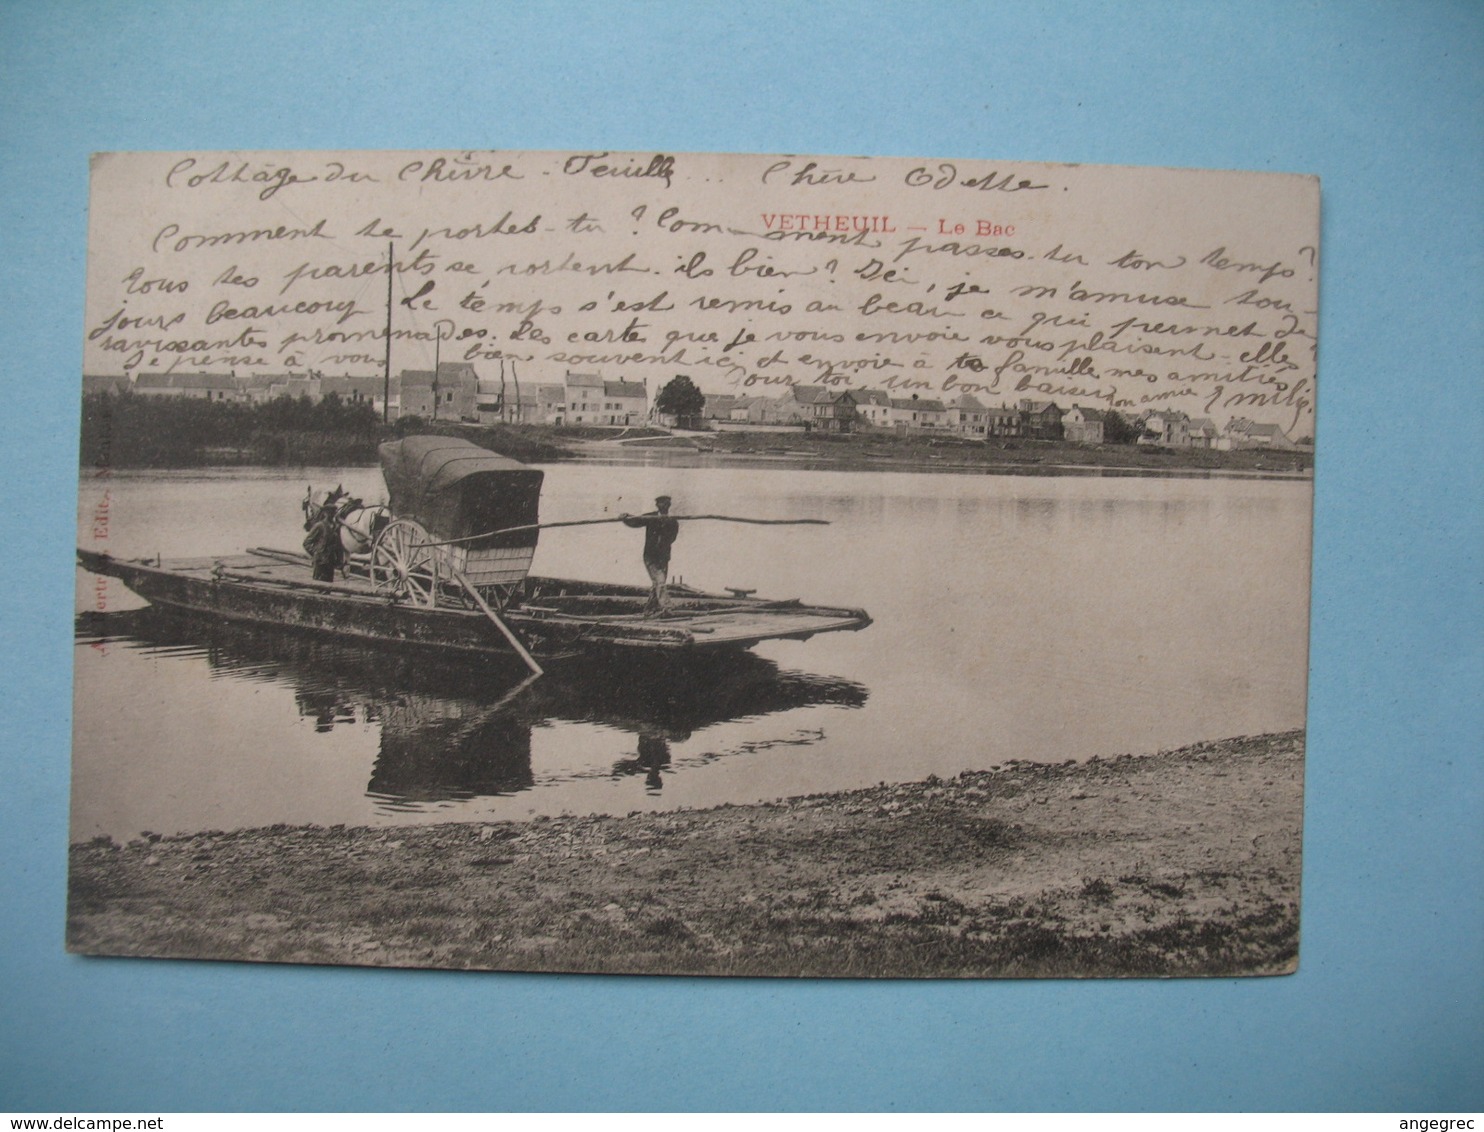 Cottage du Chèvre-Feuille... Chère Odette.
VETHEUIL — Le Bac
Comment te portes-tu? Com-ment passes-tu ton temps?
Tous tes parents se portent-ils bien? Ici, je m'amuse tou-
jours beaucoup Le temps s'est remis au beau ce qui permet de
ravissantes promenades. Les cartes que je vous envoie vous plaisent-elles?
Je pense à vous bien souvent ici et envoie à ta famille mes amitiés
Pour toi, un bon baiser Ton amie Emily.
Edit.
delcampe.net
angegrec